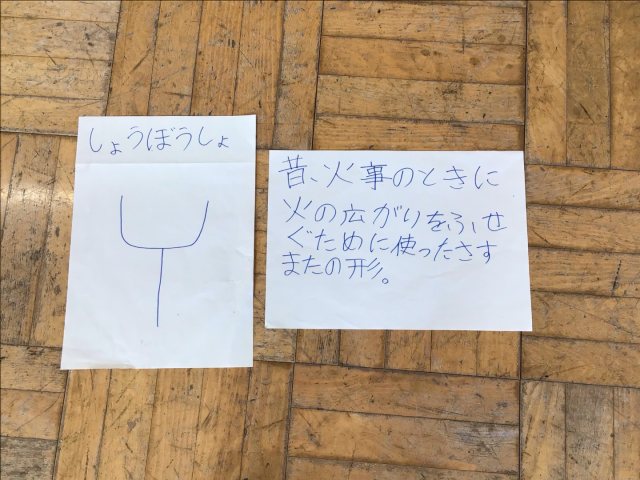 しょうぼうしょ
昔、火事のときに
火の広がりをふせ
ぐために使ったさす
またの形。